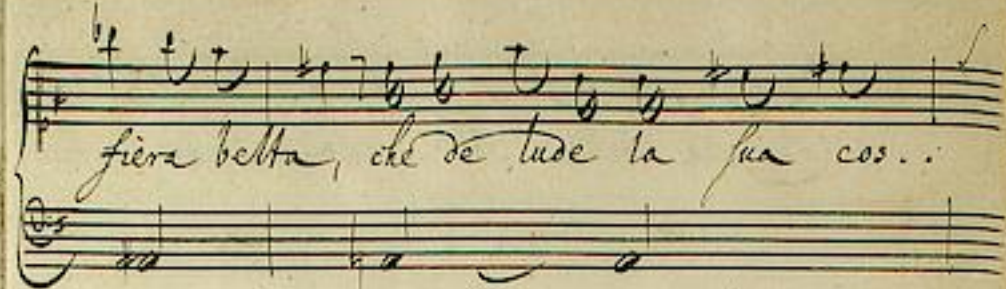 fiera belta, che de lude la sua cos..